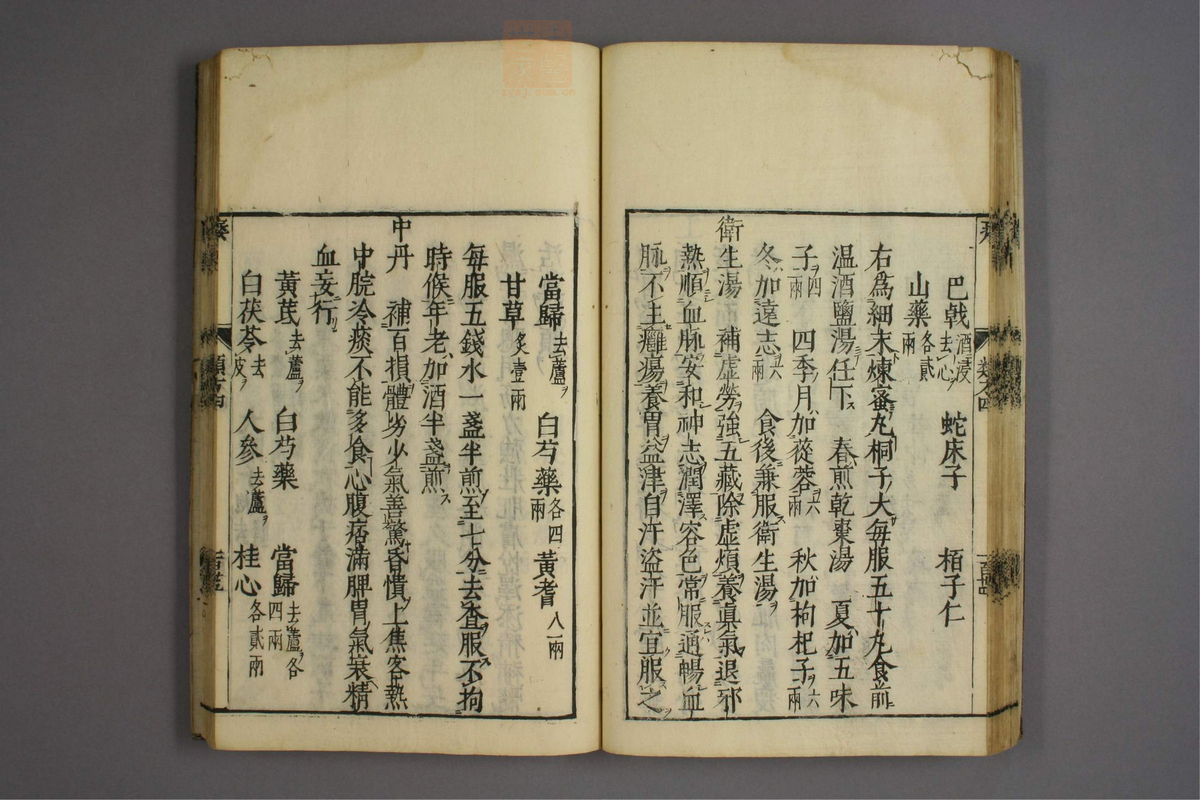 巴戟酒浸去心 蛇床子 栢子仁
山藥各貳兩
右爲細末煉蜜丸桐子大每服五十丸食前
温酒鹽湯任下 春煎乾棗湯 夏加五味
子四兩 四季月加蓯蓉六兩 秋加枸杞子六兩
冬加遠志六兩 食後兼服衛生湯
衛生湯 補虛勞強五藏除虛煩養真氣退邪
熱順血脉安和神志潤澤容色常服通暢血
脉不生癰瘍養胃益津自汗盜汗並宜服之
當歸去蘆 白芍藥各四兩 黃耆八兩
甘草炙壹兩
每服五錢水一盞半煎至七分去査服不拘
時候年老加酒半盞煎
中丹 補百損體劣少氣善驚昏憒上焦客熱
中脘冷痰不能多食心腹痞滿脾胃氣衰精
血妄行
黃芪去蘆 白芍藥 當歸去蘆各四兩
白茯苓去皮 人參去蘆 桂心各貳兩